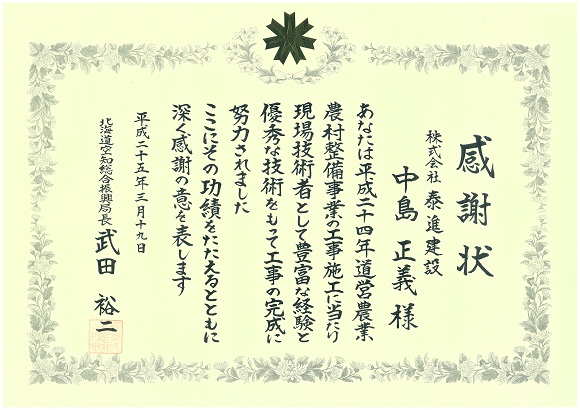 感謝状
株式会社 泰進建設
中島 正義 様
あなたは平成二十四年道営農業
農村整備事業の工事施工に当たり
現場技術者として豊富な経験と
優秀な技術をもって工事の完成に
努力されました
ここにその功績をたたえるとともに
深く感謝の意を表します
平成二十五年三月十九日
北海道空知総合振興局長 武田 裕二